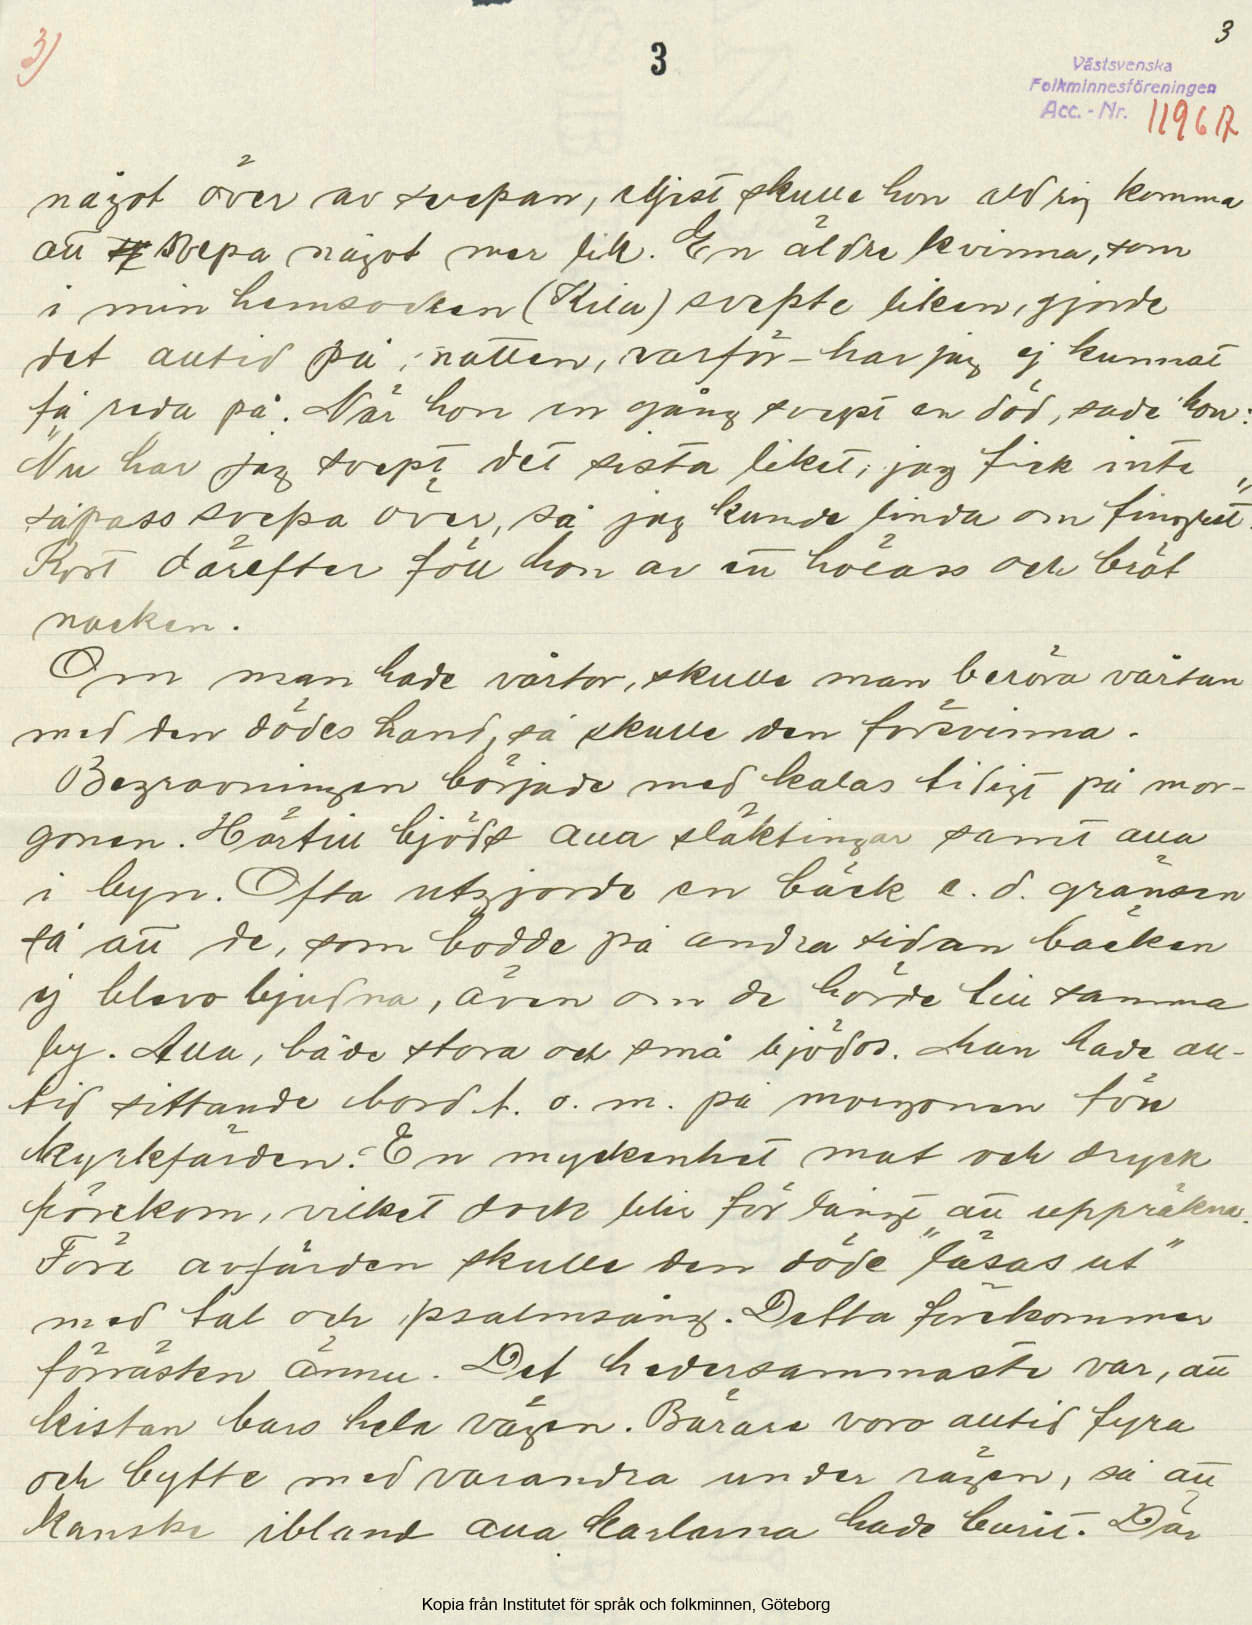 3)
3
3
Västsvenska
Folkminnesföreningen
Acc.-Nr. 1196 A
något över av svepan, eljest skulle hon aldrig komma
att svepa något mer lik. En äldre kvinna, som
i min hemsocken (Kila) svepte liken, gjorde
det alltid på natten, varför har jag ej kunnat
få reda på. När hon en gång svept en död, sade hon:
"Nu har jag svept det sista liket, jag fick inte
såpass svepa över, så jag kunde linda om fingret."
Kort därefter föll hon av ett hölass och bröt
nacken.
Om man hade vårtor, skulle man beröra vårtan
med den dödes hand, så skulle den försvinna.
Begravningen började med kalas tidigt på mor-
gonen. Härtill bjöds alla släktingar samt alla
i byn. Ofta utgjorde en bäck e. d. gränsen
så att de, som bodde på andra sidan bäcken
ej blevo bjudna, även om de hörde till samma
by. Alla, både stora och små bjödos. Man hade all-
tid sittande bord t. o. m. på morgonen före
kyrkfärden. En myckenhet mat och dryck
förekom, vilket dock blir för långt att uppräkna.
Före avfärden skulle den döde "läsas ut"
med tal och psalmsång. Detta förekommer
förresten ännu. Det hedersammaste var, att
kistan bars hela vägen. Bärare voro alltid fyra
och bytte med varandra under vägen, så att
kanske ibland alla karlarna hade burit. Där
Kopia från Institutet för språk och folkminnen, Göteborg